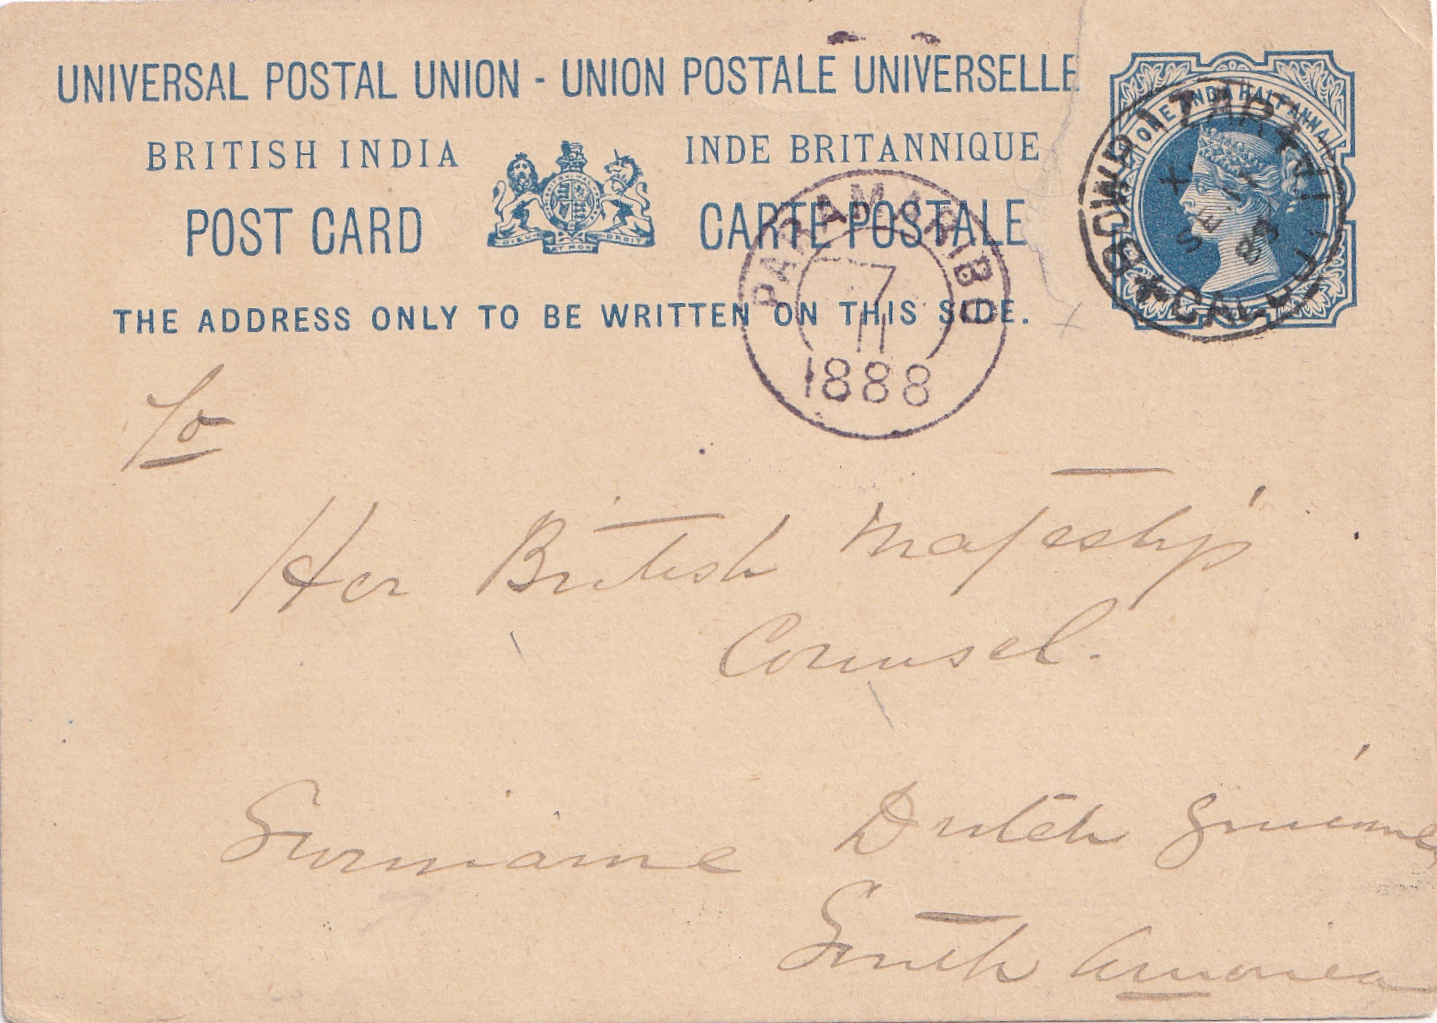 UNIVERSAL POSTAL UNION - UNION POSTALE UNIVERSELLE
BRITISH INDIA INDE BRITANNIQUE
POST CARD CARTE POSTALE
DIEU ET MON DROIT
THE ADDRESS ONLY TO BE WRITTEN ON THIS SIDE.
ONE AND A HALF ANNA
BOWBAZAR
SE 88
PARAMARIBO
7
11
1888
To
Her British Majesty's
Counsel.
Suriname Dutch Guiana
South America